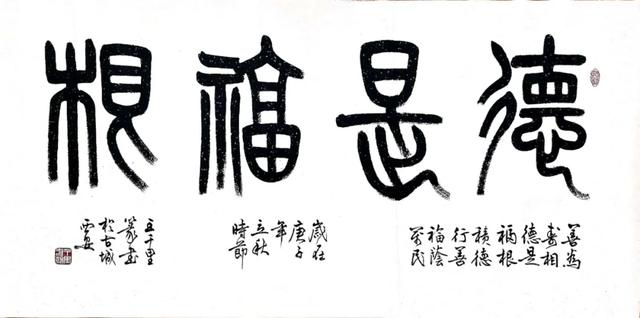 德是福根
善為
壽相
德是
福根
積德
行善
福蔭
萬民
歲在
庚子
年
立秋
時節
千里
篆書
於古城
西安